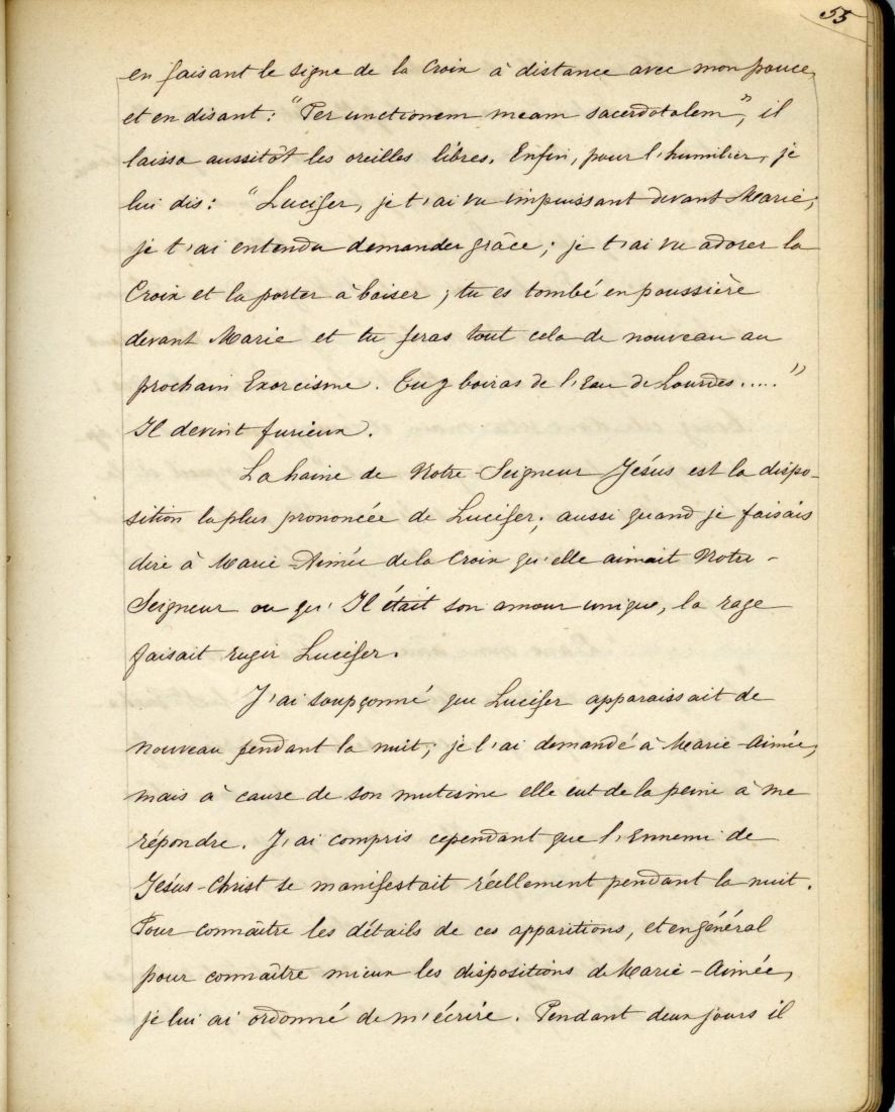 55
en faisant le signe de la Croix à distance avec mon pouce,
et en disant : "Per unctionem meam sacerdotalem", il
laissa aussitôt les oreilles libres. Enfin, pour l'humilier, je
lui dis : "Lucifer, je t'ai vu impuissant devant Marie;
je t'ai entendu demander grâce; je t'ai vu adorer la
Croix et la porter à baiser; tu es tombé en poussière
devant Marie et tu feras tout cela de nouveau au
prochain Exorcisme. Tu y boiras de l'Eau de Lourdes....."
Il devint furieux.
La haine de Notre-Seigneur Jésus est la dispo-
sition la plus prononcée de Lucifer; aussi quand je faisais
dire à Marie-Aimée de la Croix qu'elle aimait Notre-
Seigneur ou qu'Il était son amour unique, la rage
faisait rugir Lucifer.
J'ai soupçonné que Lucifer apparaissait de
nouveau pendant la nuit; je l'ai demandé à Marie-Aimée,
mais à cause de son mutisme elle eut de la peine à me
répondre. J'ai compris cependant que l'Ennemi de
Jésus-Christ se manifestait réellement pendant la nuit.
Pour connaître les détails de ces apparitions, et en général
pour connaître mieux les dispositions de Marie-Aimée,
je lui ai ordonné de m'écrire. Pendant deux jours il